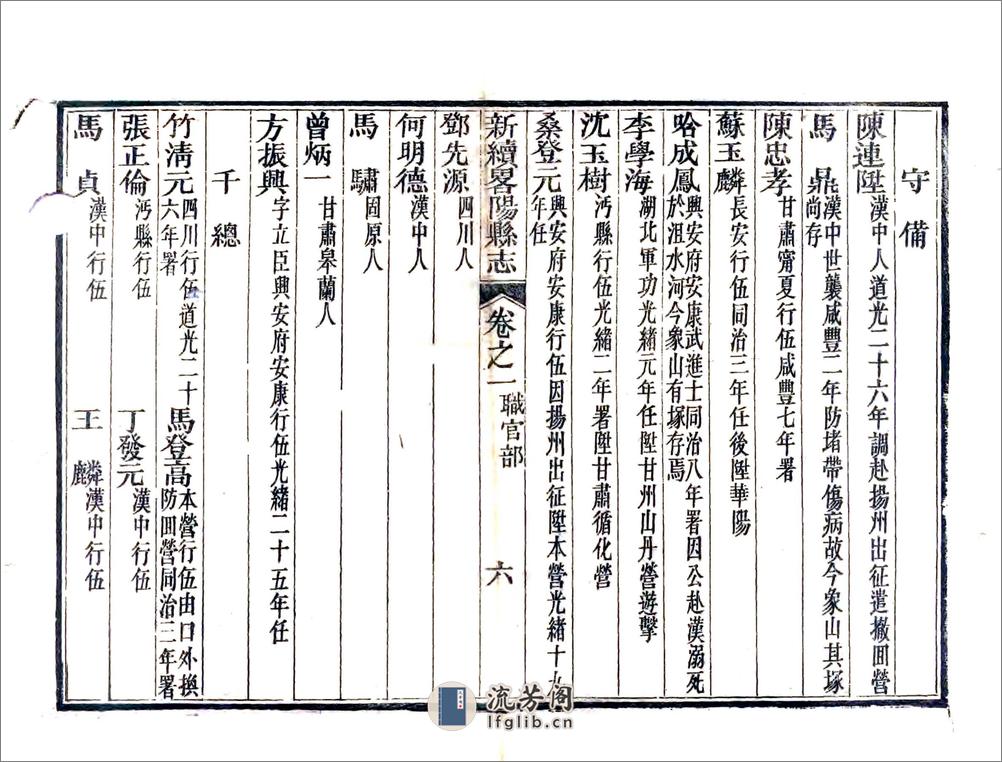 守備
陳連陞漢中人道光二十六年調赴揚州出征遣撤回營
馬鼎漢中世襲咸豐二年防堵帶傷病故今象山其塚尚存
陳忠孝甘肅甯夏行伍咸豐七年署
蘇玉麟長安行伍同治三年任後陞華陽
哈成鳳興安府安康武進士同治八年署因公赴漢溺死於沮水河今象山有塚存焉
李學海湖北軍功光緒元年任陞甘州山丹營遊擊
沈玉樹沔縣行伍光緒二年署陞甘肅循化營
桑登元興安府安康行伍因揚州出征陞本營光緒十九年任
新續畧陽縣志 卷之一 職官部 六
鄧先源四川人
何明德漢中人
馬驌固原人
曾炳一甘肅皋蘭人
方振興字立臣興安府安康行伍光緒二十五年任
千總
竹清元四川行伍道光二十六年署 馬登高本營行伍由口外換防囬營同治三年署
張正倫沔縣行伍 丁發元漢中行伍
馬貞漢中行伍 王麟漢中行伍
流芳阁
lfglib.cn